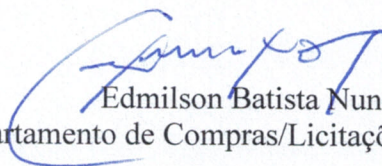 Edmilson Batista Nun
artamento de Compras/Licitaçõ